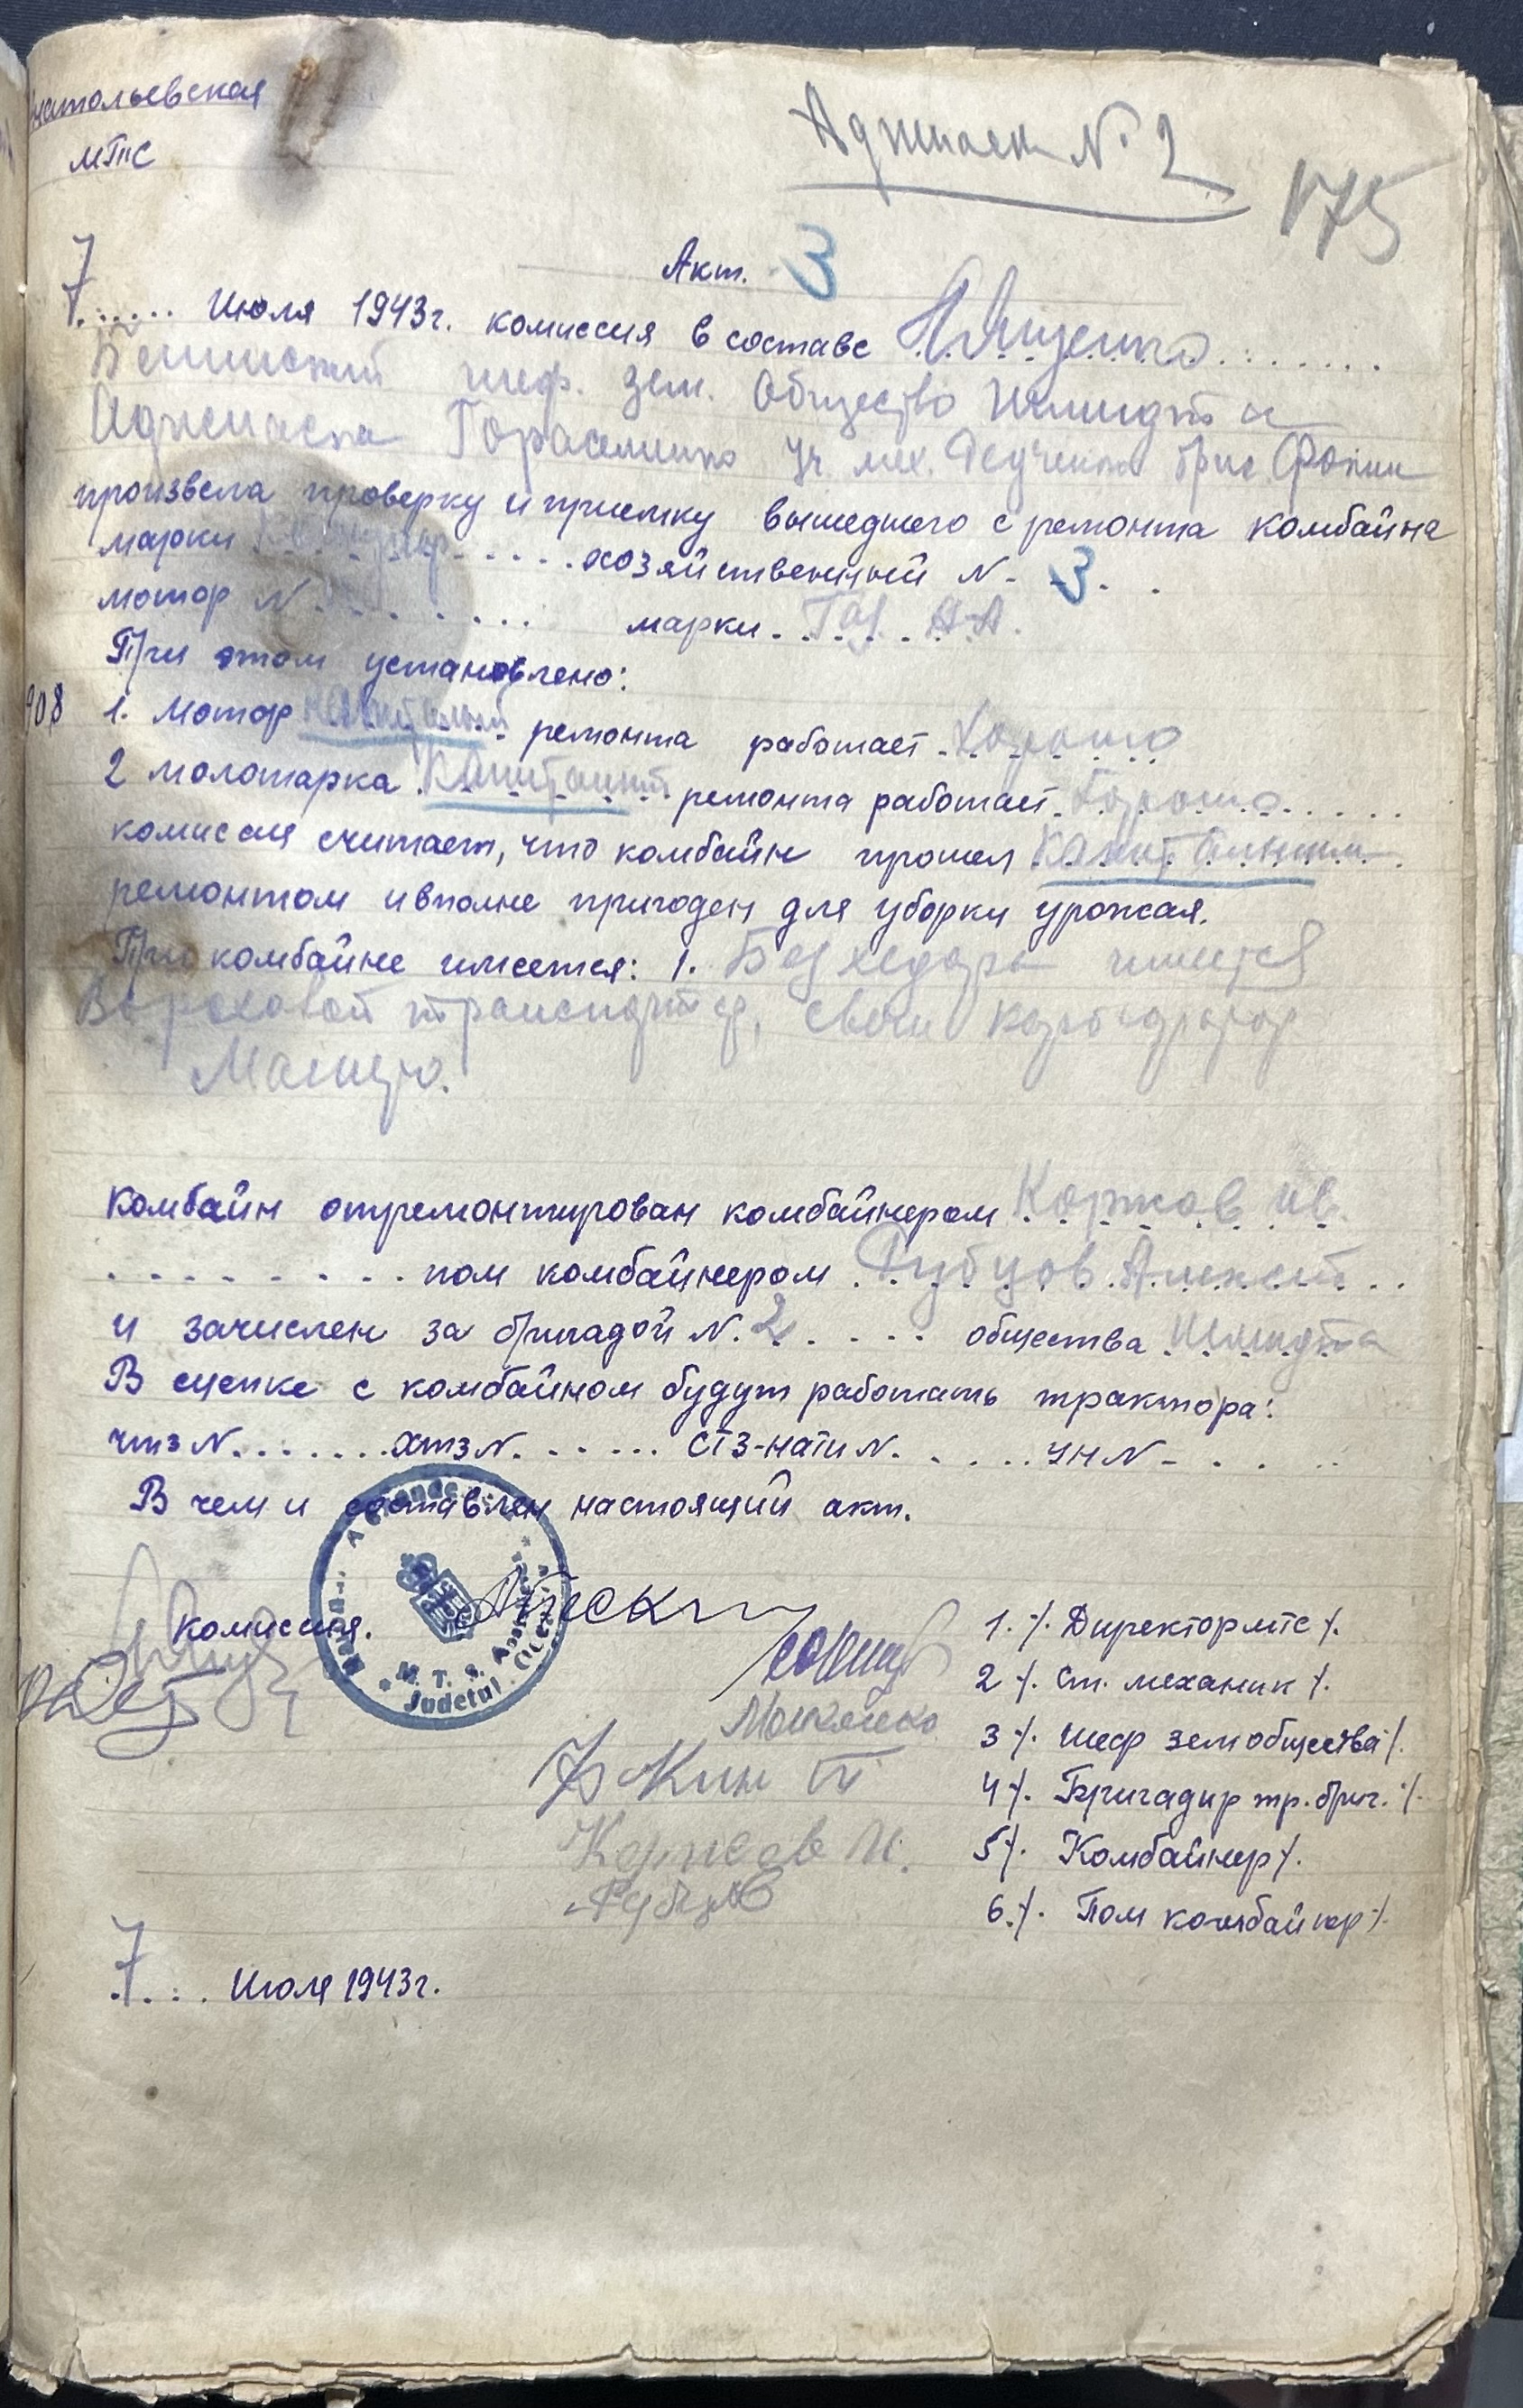 Анатольевская
МТС
Аджиаск N. 2
175
Акт. 3
7..... Июля 1943г. комиссия в составе Ященко
шеф. зем. Общество Шмидта
Аджиаска Горасименко Уч. мех. бриг. Фокин
произвела проверку и приемку вышедшего с ремонта комбайна
марки ..... хозяйственный N- 3. .
мотор N ....... марки. Газ. А-А.
При этом установлено:
908 1. Мотор капитальный ремонта работает. Хорошо
2 молотарка Капитальный ремонта работает. Хорошо......
комиссия считает, что комбайн прошел капитальным
ремонтом и вполне пригоден для уборки урожая.
При комбайне имеется: 1. Без хедора имеется
Вороховой транспортер, свечи карбюратор
Магнето.
Комбайн отремонтирован комбайнером Коржов Ив.
......... пом комбайнером Рубцов Алексей..
и зачислен за бригадой N. 2..... общества Шмидта
В сцепке с комбайном будут работать трактора:
чтз N....... хтз N...... СТЗ-нати N..... УН N-....
В чем и составлен настоящий акт.
Комиссия.
M. T. S.
Judetul Oceacov
1. /. Директор мтс /.
2 /. Ст. механик /.
3 /. Шеф земобщества /.
4 /. Бригадир тр. бриг. /.
Коржов И.
5 /. Комбайнер /.
Рубцов
6. /. Пом комбайнер /.
7... Июля 1943г.